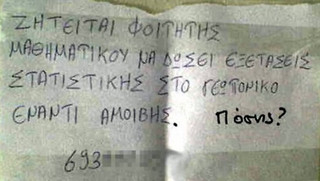 ΖΗΤΕΙΤΑΙ ΦΟΙΤΗΤΗΣ
ΜΑΘΗΜΑΤΙΚΟΥ ΝΑ ΔΩΣΕΙ ΕΞΕΤΑΣΕΙΣ
ΣΤΑΤΙΣΤΙΚΗΣ ΣΤΟ ΓΕΩΠΟΝΙΚΟ
ΕΝΑΝΤΙ ΑΜΟΙΒΗΣ. Πόσης?
693